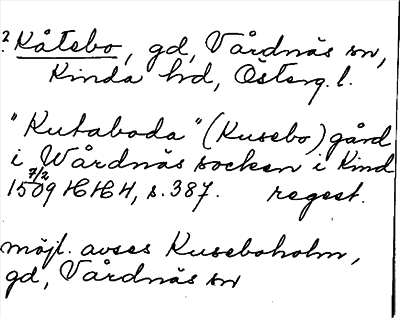 ? Kåtebo, gd, Vårdnäs sn,
Kinda hd, Österg. l.
"Kutaboda" (Kusebo) gård
i Wårdnäs socken i Kind
7/2 1509 HH 4, s. 387. regest.
möjl. avses Kuseboholm,
gd, Vårdnäs sn